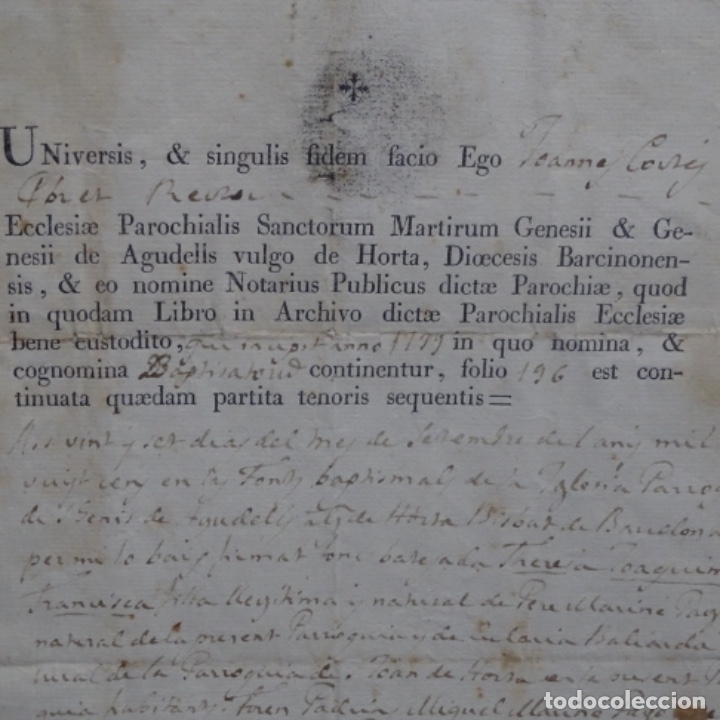 UNiversis, & singulis fidem facio Ego Joannes
Rector
Ecclesiæ Parochialis Sanctorum Martirum Genesii & Ge-
nesii de Agudells vulgo de Horta, Diœcesis Barcinonen-
sis, & eo nomine Notarius Publicus dictæ Parochiæ, quod
in quodam Libro in Archivo dictæ Parochialis Ecclesiæ
bene custodito, qui incipit anno 1799 in quo nomina, &
cognomina Baptisatorum continentur, folio 196 est con-
tinuata quædam partita tenoris sequentis=
vint y set dias del mes de Setembre del any mil
vuyt cens en las Fonts baptismals de la Iglesia Parro
de St Genis de Agudells als de Horta Bisbat de Barcelona
per mi lo baix firmat fonc batejada Theresa Joaquim
Francisca filla llegitima y natural de Pere Mariné Pag
natural de la present Parroquia y de
tural de la Parroquia de St Joan de Horta en la present
quia habitants. Foren Padrins Miquel
todocoleccion.net